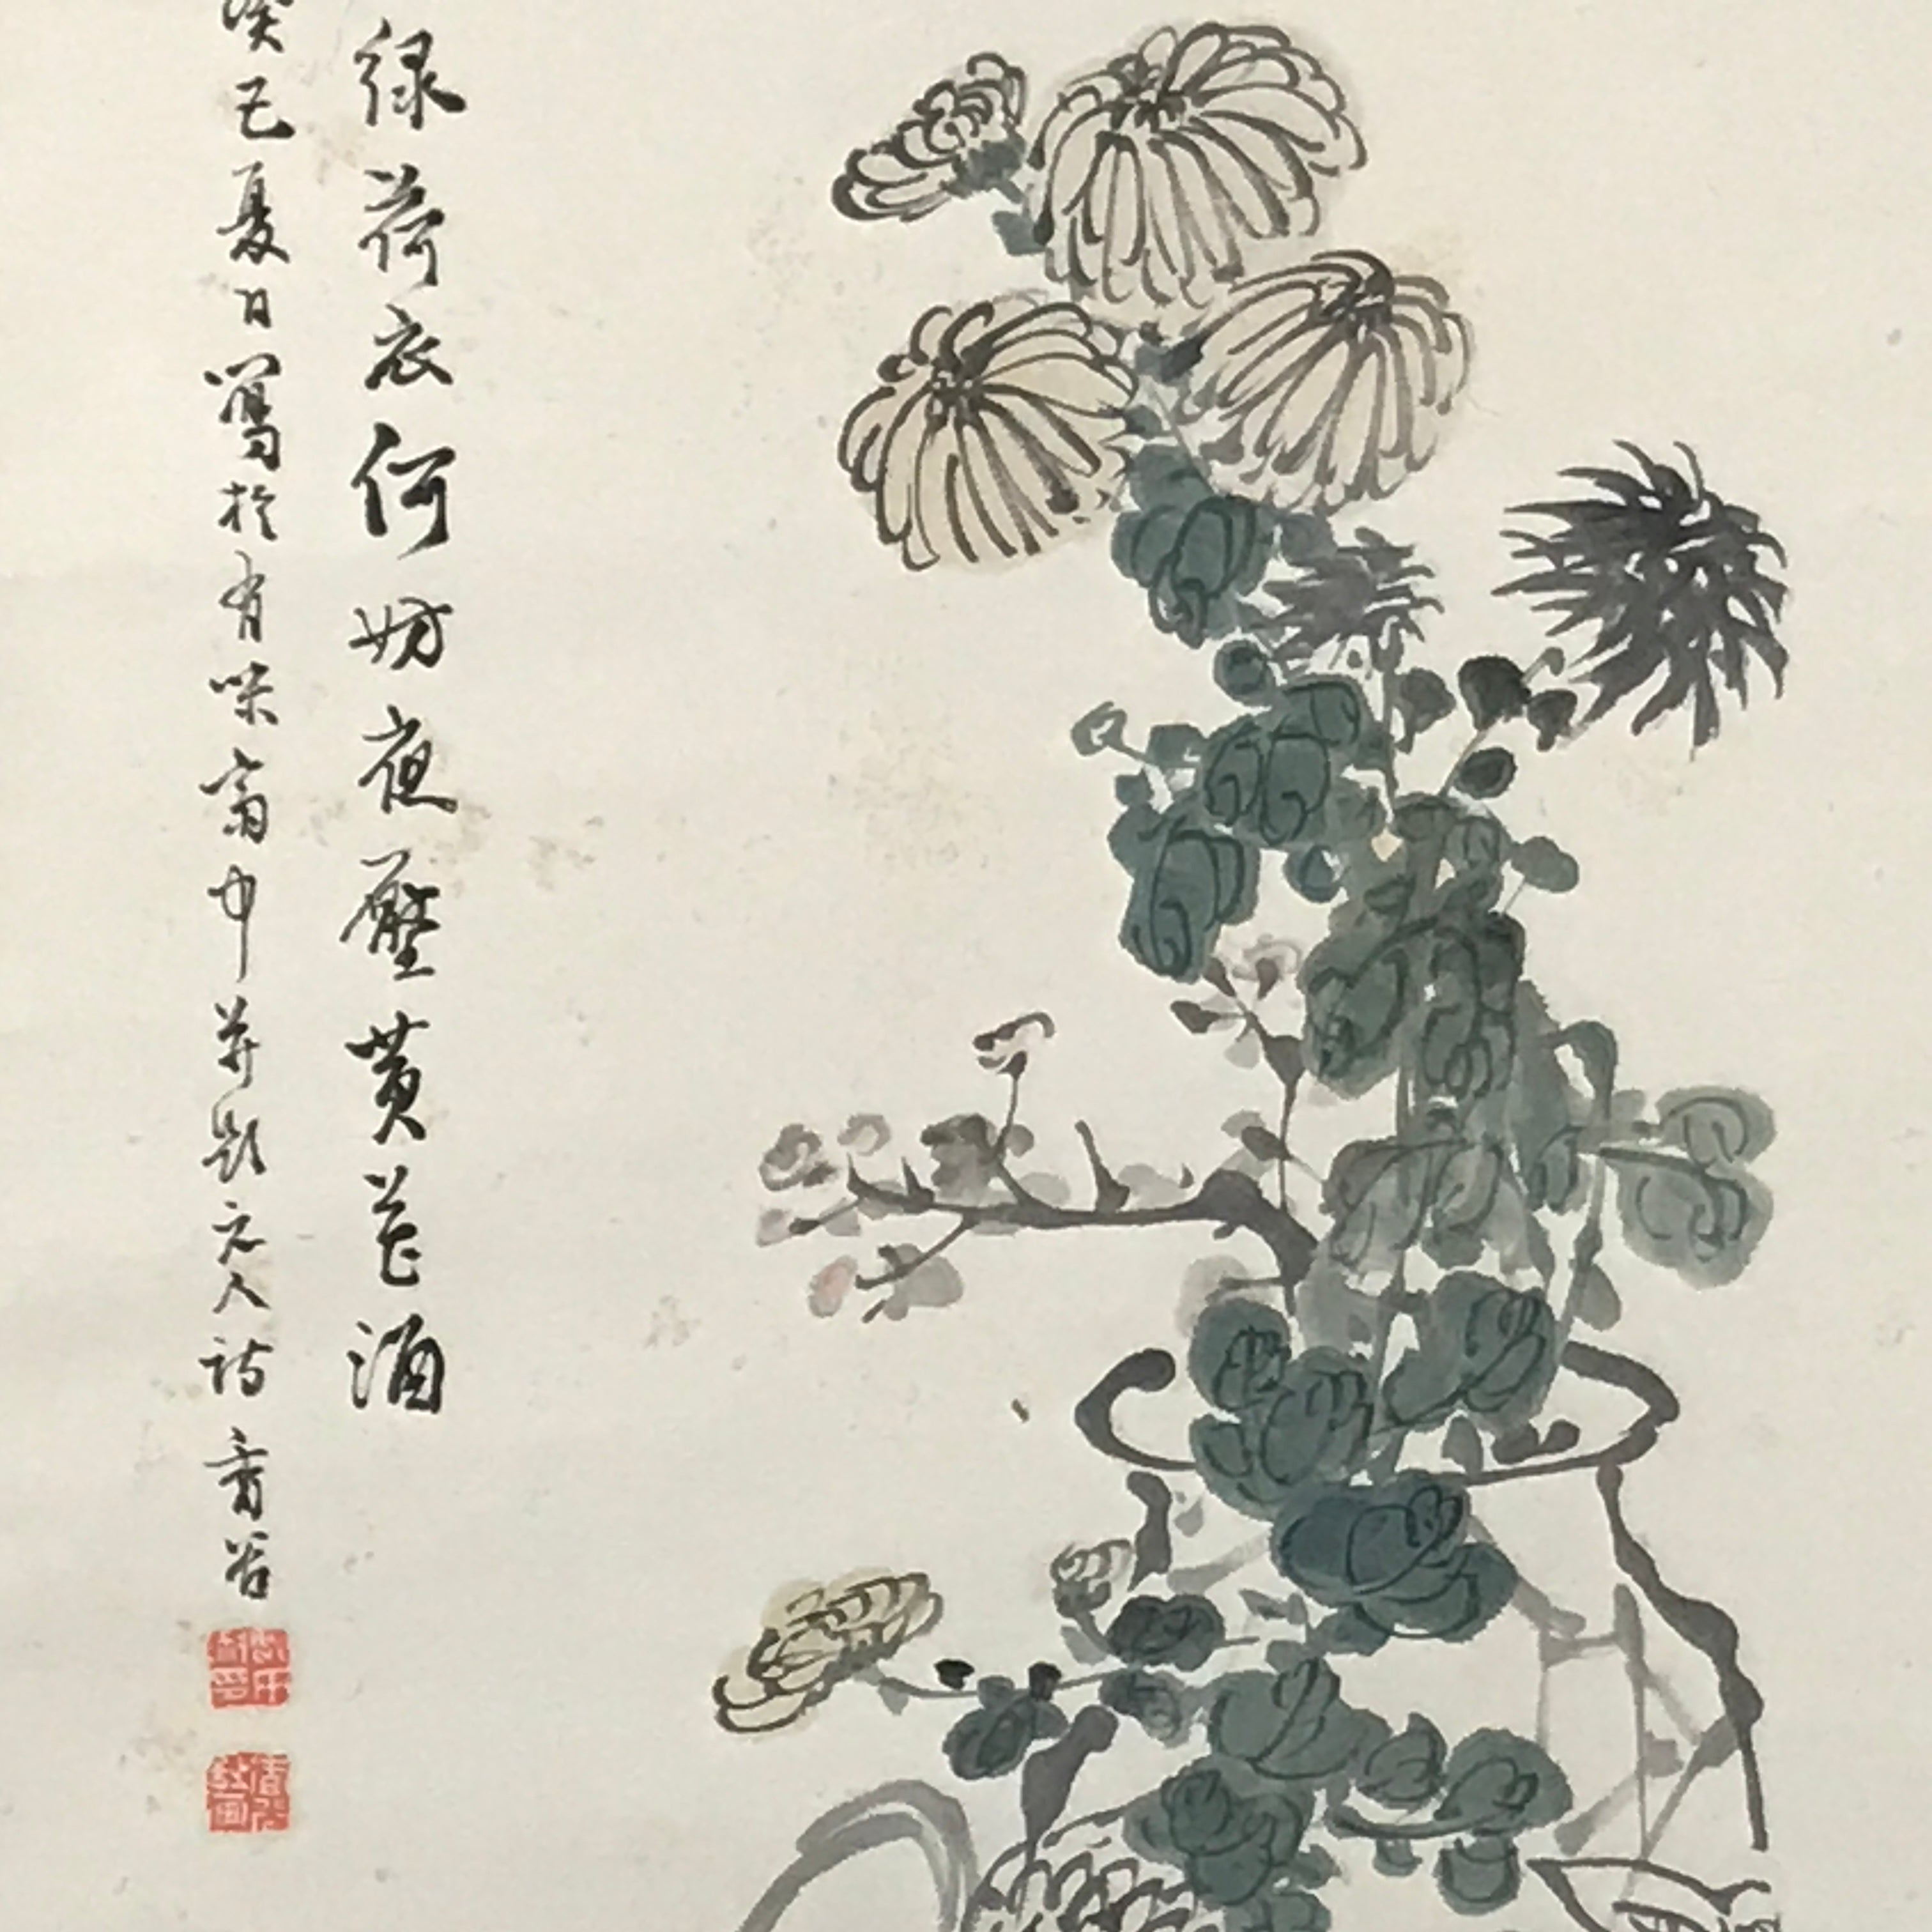 绿荷衣何妨夜壓黄花酒
癸巳夏日寫於有味齋中并題元人詩 香谷